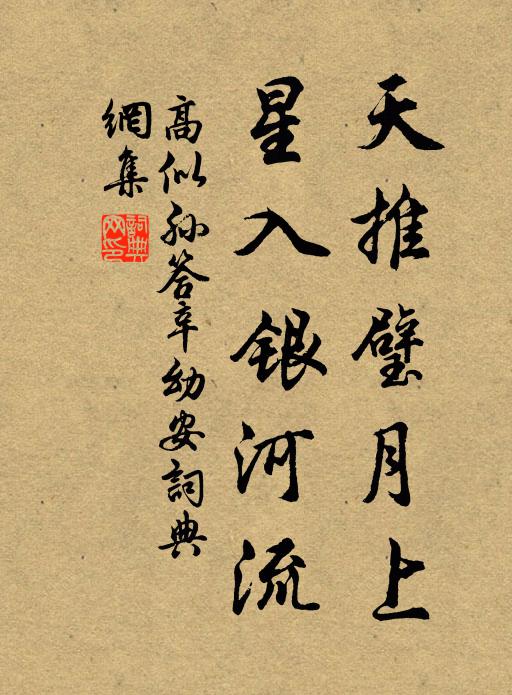 天推璧月上
星入銀河流
高似孫答辛幼安詞典
網集
詞典网印